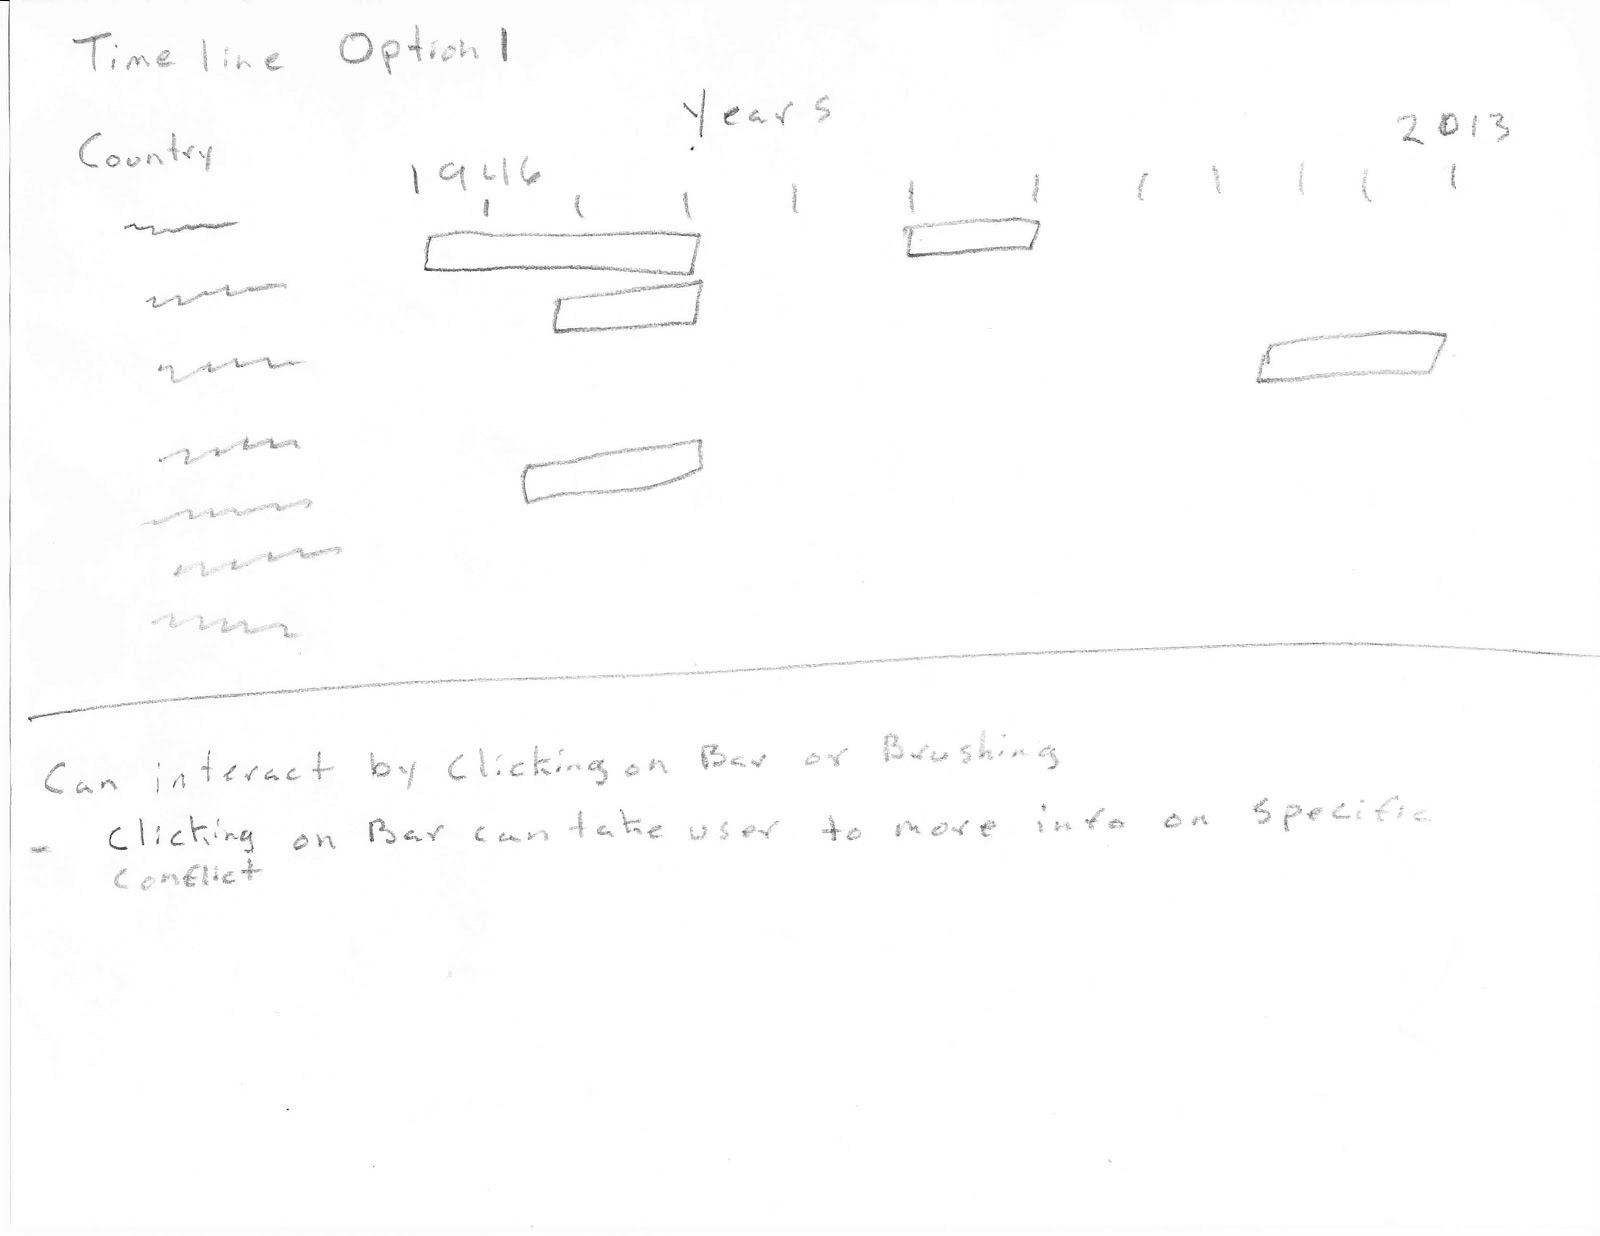 Timeline Option 1
Years
2013
Country
1946
Can interact by Clicking on Bar or Brushing
- Clicking on Bar can take user to more info on specific
conflict